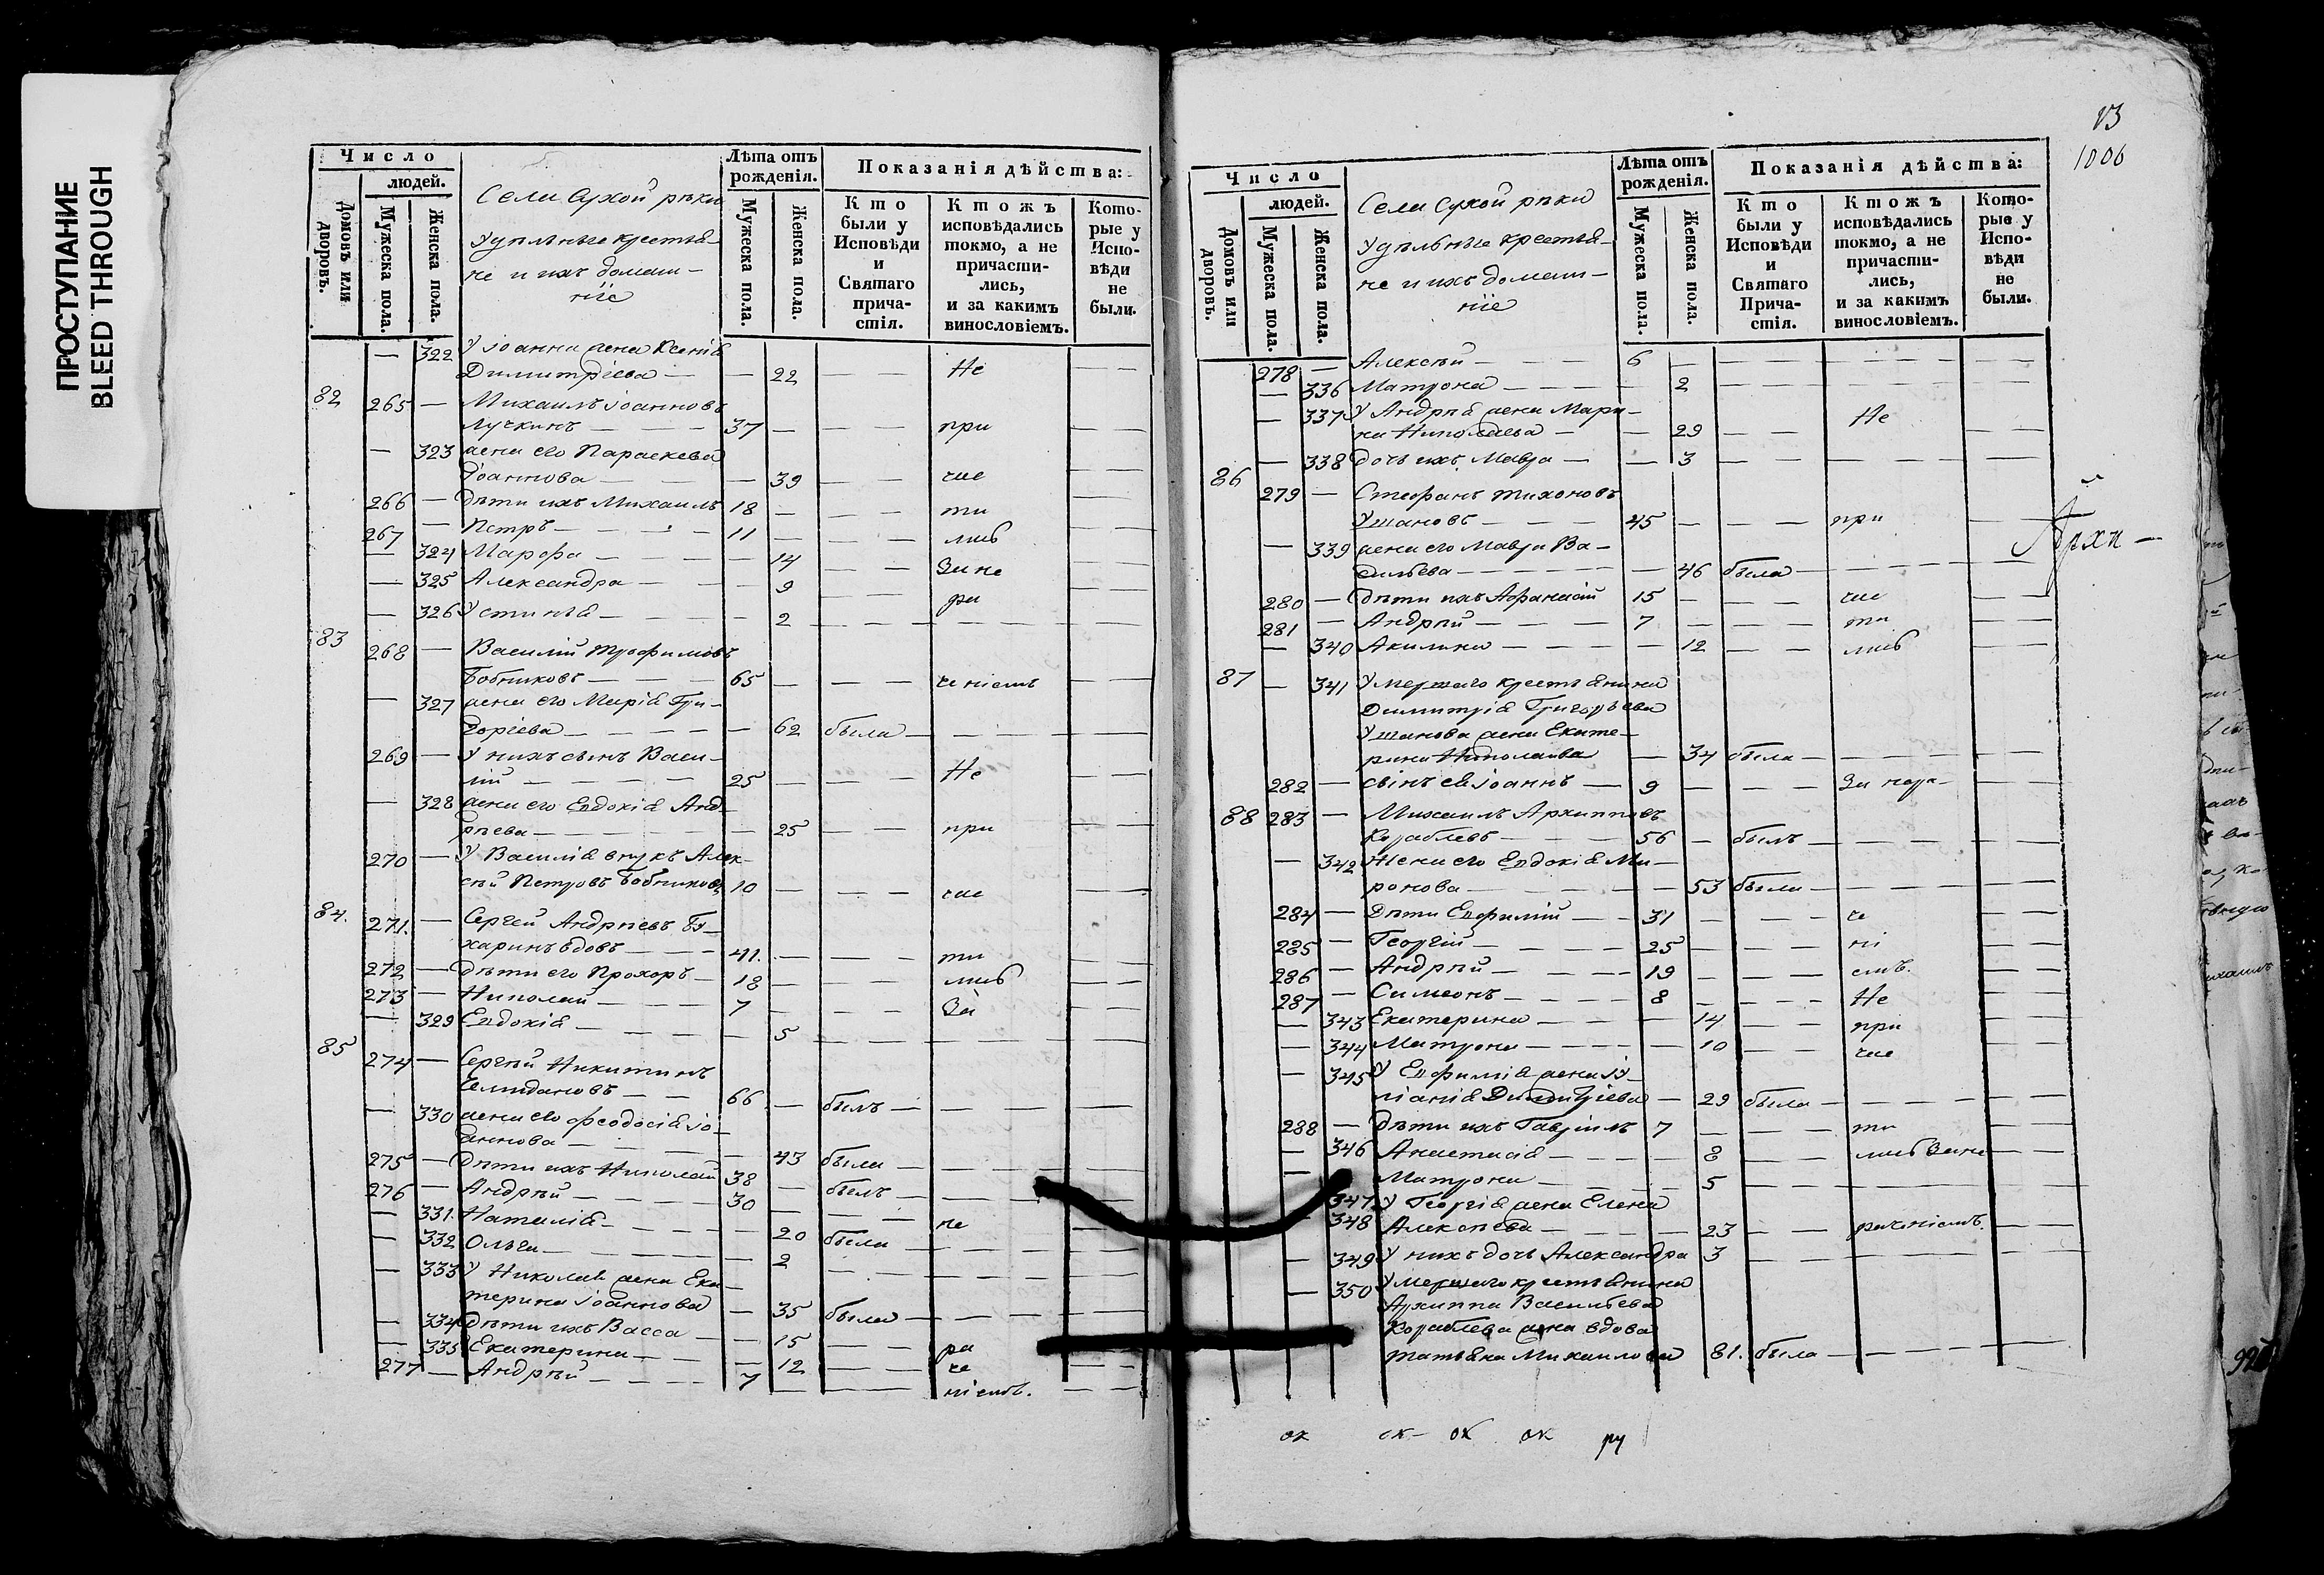 ПРОСТУПАНИЕ
BLEED THROUGH
Число
людей.
Домовъ или дворовъ.
Мужеска пола.
Женска пола.
Села Сухой рѣки
Удѣльные крестья-
не и ихъ домаш-
ніе
Лѣта отъ рожденія.
Мужеска пола.
Женска пола.
Показанія дѣйства:
Кто были у Исповѣди и Святаго причастія.
Ктожъ исповѣдались токмо, а не причастились, и за какимъ винословіемъ.
Которые у Исповѣди не были.
— 322 У Іоанна жена Ксенія
Димитріева — — 22 — — Не — —
82 265 — Михаилъ Іоанновъ
Лучкинъ — — — 37 — — — при — —
— 323 жена его Параскева
Іоаннова — — — 39 — — час — —
266 — дѣти ихъ Михаилъ 18 — — — ти — —
267 — Петръ — — — 11 — — — лись — —
— 324 Марфа — — — 14 — — За не — —
— 325 Александра — — — 9 — — ра — —
— 326 Устинья — — — 2 — — — — —
83 268 — Василій Трофимовъ
Бобниковъ — — — 65 — — — ченіемъ — —
— 327 жена его Марія Гри-
горіева — — — 62 была — — — —
269 — У нихъ сынъ Васи-
лій — — — 25 — — — Не — —
— 328 жена его Евдокія Анд-
рѣева — — — 25 — — при — —
270 — У Василія внукъ Алек-
сѣй Петровъ Бобниковъ 10 — — — час — —
84. 271. — Сергей Андрѣевъ Бу-
харинъ вдовъ — — 41. — — — ти — —
272 — дѣти его Прохоръ — 18 — — — лись — —
273 — Николай — — — 7 — — — За — —
— 329 Евдокія — — — 5 — — — — —
85 274 — Сергѣй Никитинъ
Селидановъ — — 66 — былъ — — — —
— 330 жена его Феодосія Іо-
аннова — — — 43 была — — — —
275 — Дѣти ихъ Николай 38 — былъ — — —
276 — Андрѣй — — — 30 — — — не —
— 331. Наталія — — — 20 была — — —
— 332 Ольга — — — 2 — — — —
— 333 У Николая жена Ека-
терина Іоаннова — 35 была — — — —
— 334 Дѣти ихъ Васса — — 15 — — ра — —
— 335 Екатерина — — — 12 — — че — —
277 — Андрѣй — — — 7 — — — ніемъ. — —
13
1006
Число
людей.
Домовъ или дворовъ.
Мужеска пола.
Женска пола.
Села Сухой рѣки
Удѣльные крестья-
не и ихъ домаш-
ніе
Лѣта отъ рожденія.
Мужеска пола.
Женска пола.
Показанія дѣйства:
Кто были у Исповѣди и Святаго Причастія.
Ктожъ исповѣдались токмо, а не причастились, и за какимъ винословіемъ.
Которые у Исповѣди не были.
278 — Алексѣй — — — 6 — — — — —
— 336 Матрона — — — — 2 — — — —
— 337 У Андрѣя жена Мари-
на Николаева — — 29 — — Не — —
— 338 дочь ихъ Мавра — — 3 — — — —
86 279 — Стефанъ Тихоновъ
Ушановъ — — — 45 — — — при — —
— 339 жена его Мавра Ва-
сильева — — — — 46 была — — — —
280 — дѣти ихъ Афанасій 15 — — — час — —
281 — Андрѣй — — — 7 — — — ти — —
— 340 Акилина — — — — 12 — — лись — —
87 — 341 Умершаго крестьянина
Димитрія Григорьева
Ушанова жена Екате-
рина Николаева — 34 была — — — —
282 — сынъ ея Іоаннъ — 9 — — — За нера- — —
88 283 — Михаилъ Архиповъ
Кораблевъ — — 56 — былъ — — —
— 342 Жена его Евдокія Ми-
ронова — — — 53 была — — — —
284 — Дѣти Евфимій — — 31 — — — че — —
285 — Георгій — — — 25 — — — ні — —
286 — Андрѣй — — — 19 — — — емъ. — —
287 — Симеонъ — — — — 8 — — — Не — —
— 343 Екатерина — — — 14 — — при — —
— 344 Матрона — — — — 10 — — час — —
— 345 У Евфимія жена Іу-
ліанія Димитріева — 29 была — — — —
288 — Дѣти ихъ Гавріилъ 7 — — — ти — —
— 346 Анастасія — — — 8 — — лись за не — —
— 347 Матрона — — — 5 — — — —
348 У Георгія жена Елена
Алексѣева — — — 23 — — раченіемъ. — —
— 349 У нихъ дочь Александра 3 — — — —
— 350 Умершаго крестьянина
Архиппа Васильева
Кораблева жена вдова
Татьяна Михаилова 81. была — — — —
Архи —
ок ок ок ок ру